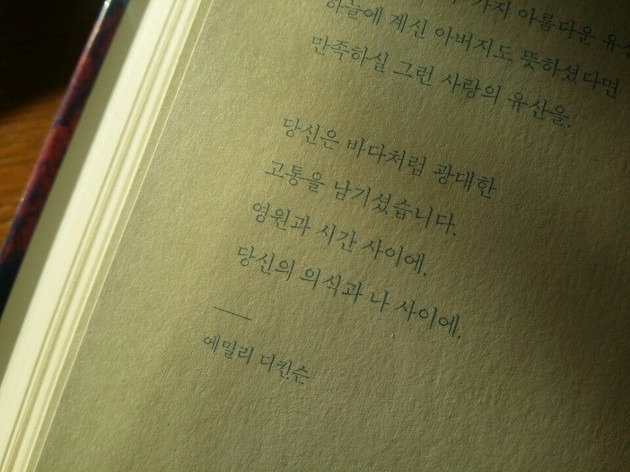 가지 아름다운 유산
하늘에 계신 아버지도 뜻하셨다면
만족하실 그런 사랑의 유산을.
당신은 바다처럼 광대한
고통을 남기셨습니다.
영원과 시간 사이에,
당신의 의식과 나 사이에.
에밀리 디킨슨